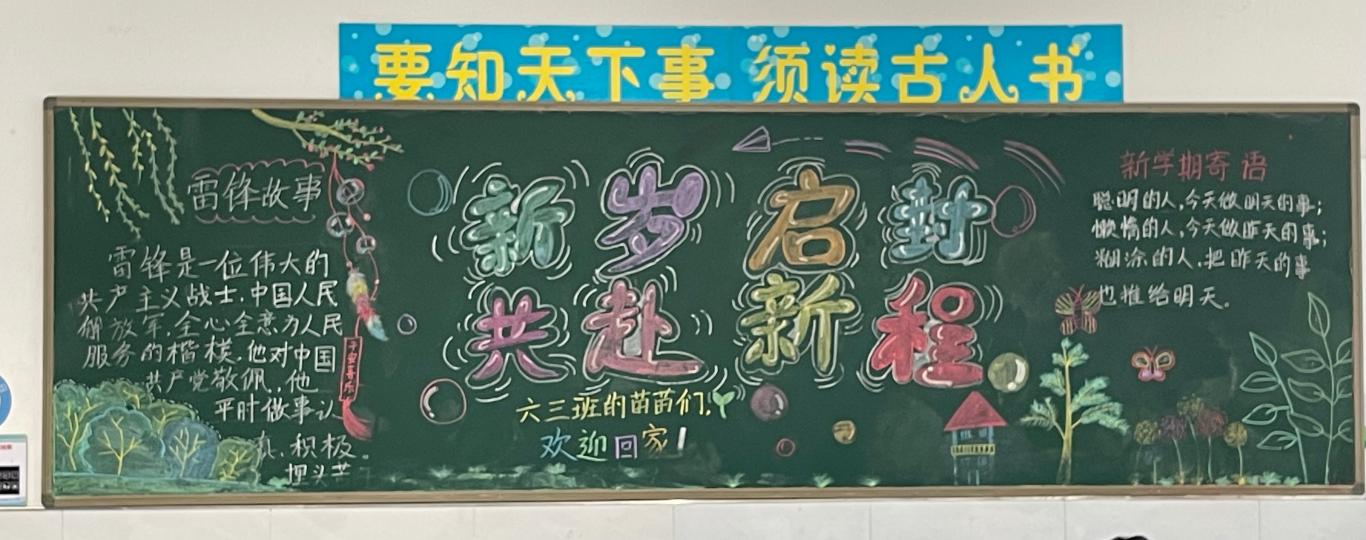 要知天下事 须读古人书
雷锋故事
雷锋是一位伟大的
共产主义战士.中国人民
解放军.全心全意为人民
服务的楷模.他对中国
共产党敬佩.他
平时做事认
真.积极。
埋头苦
平安喜乐
新岁启封
共赴新程
六三班的苗苗们,
欢迎回家!
新学期寄语
聪明的人,今天做明天的事;
懒惰的人,今天做昨天的事;
糊涂的人,把昨天的事
也推给明天。